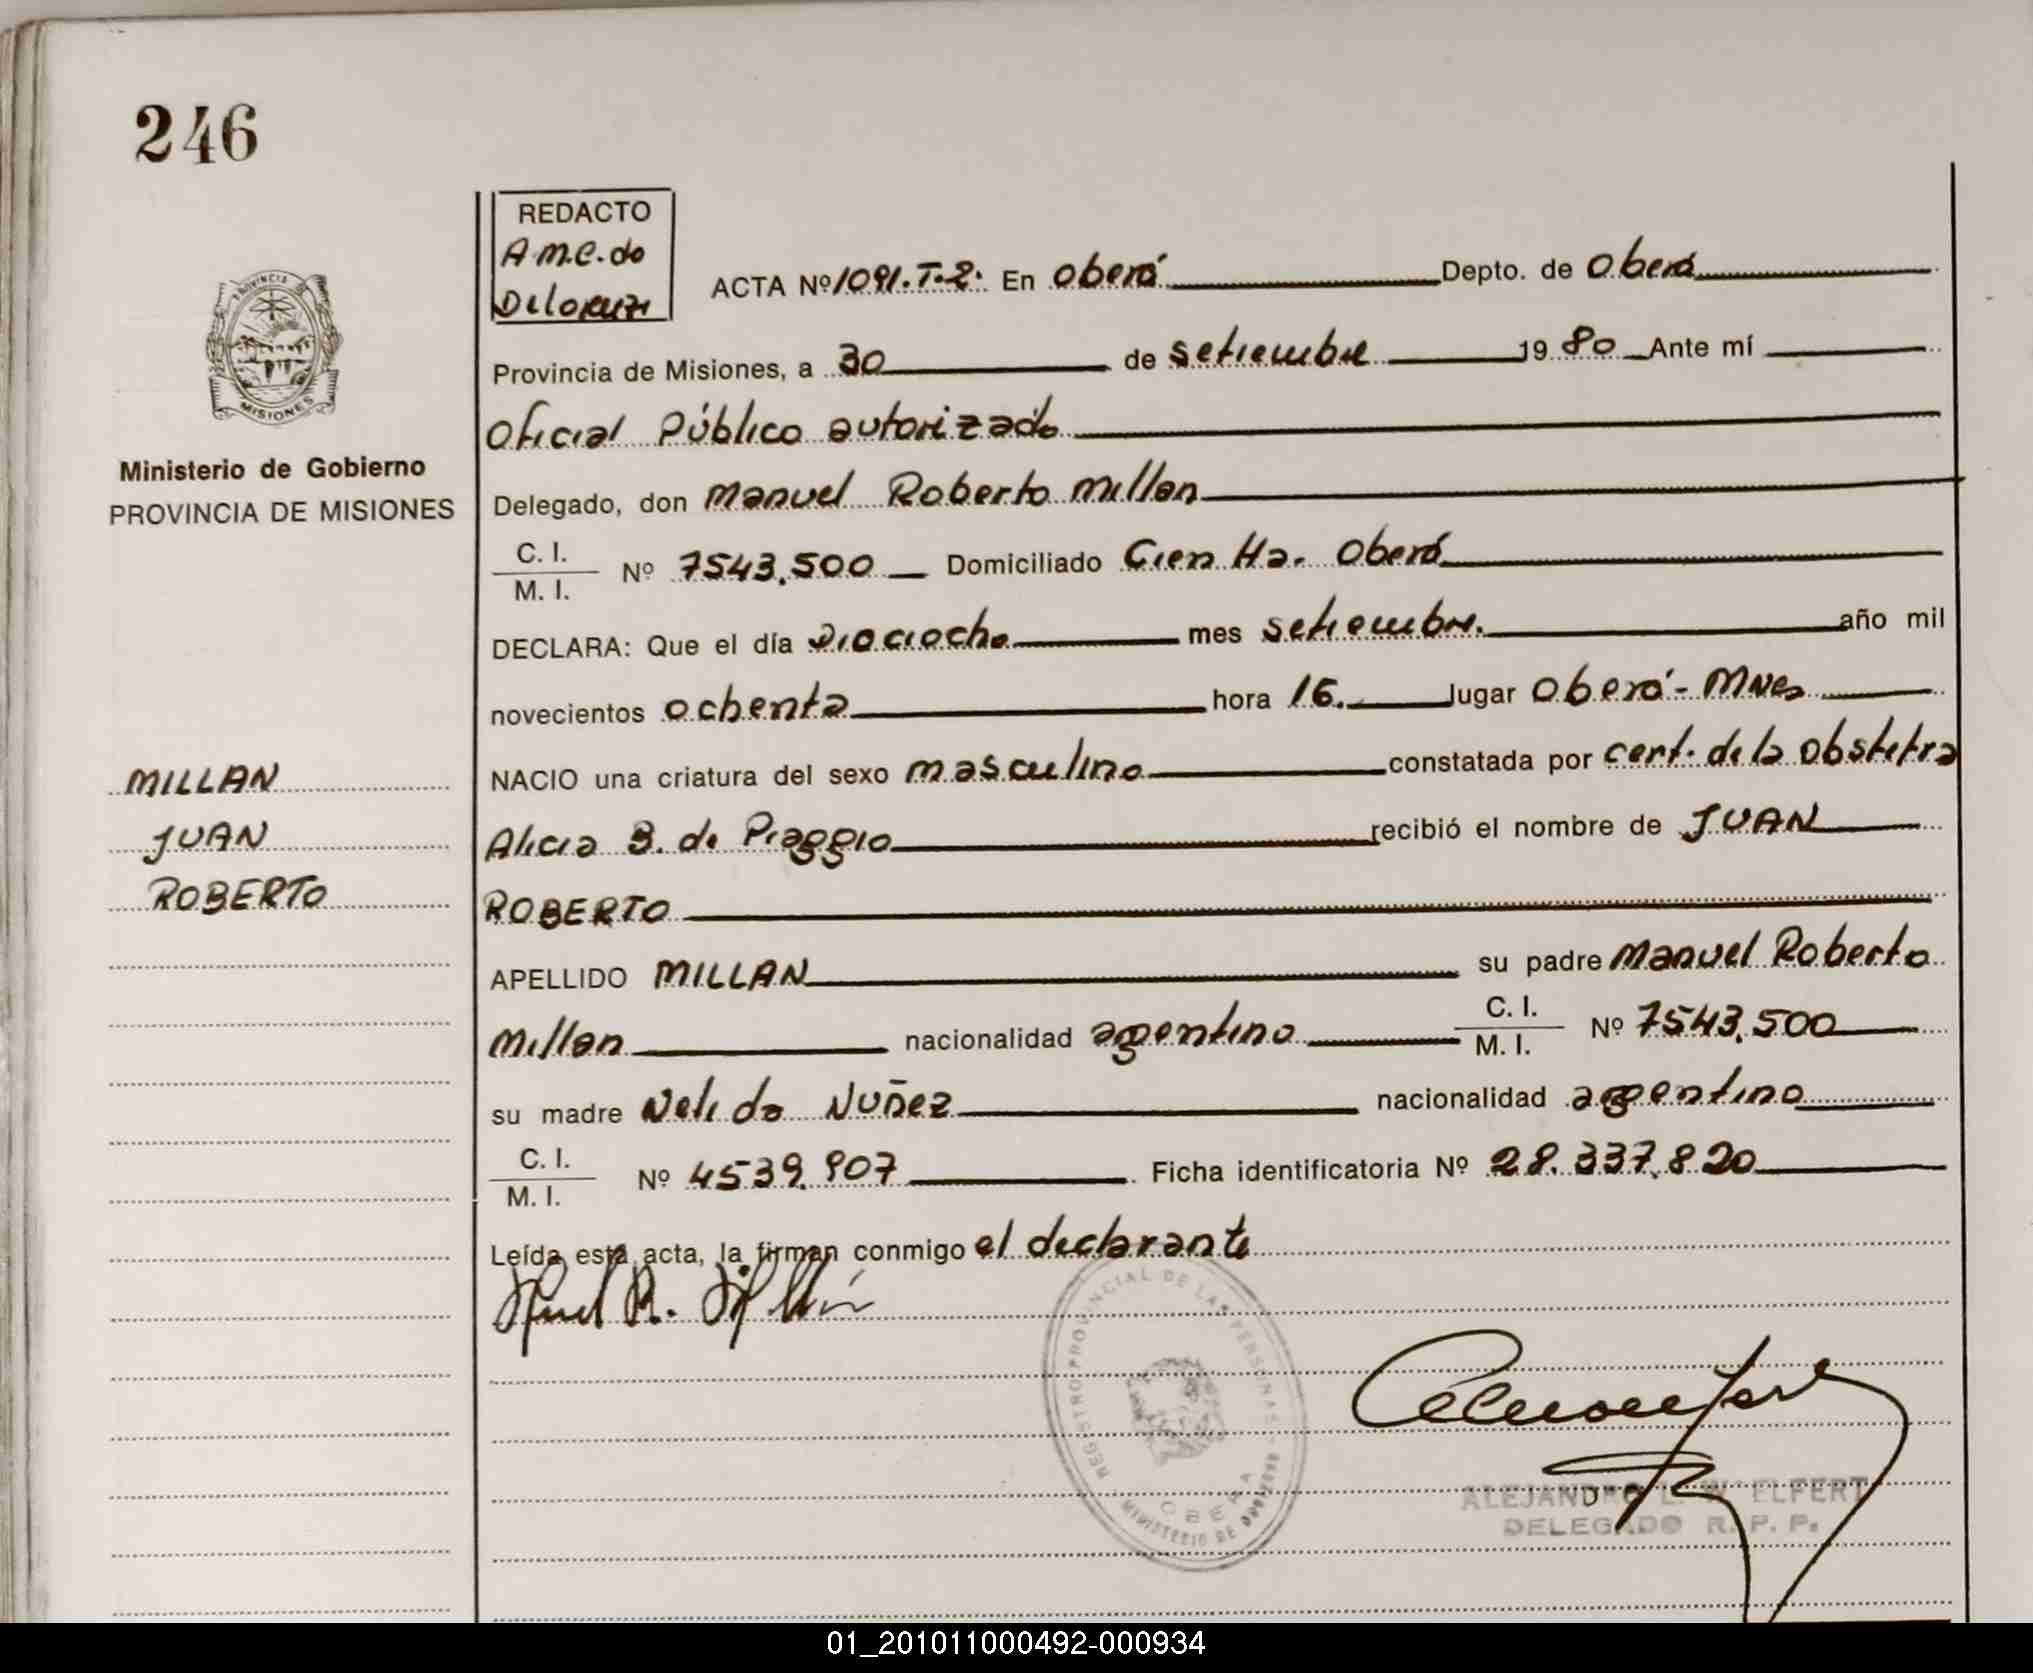 246
REDACTO
A.M.C. do
Delorenzi
ACTA Nº 1091.T.2. En Oberá Depto. de Oberá
Provincia de Misiones, a 30 de setiembre 1980 Ante mí
Oficial Público autorizado
PROVINCIA DE MISIONES
Ministerio de Gobierno
PROVINCIA DE MISIONES
Delegado, don Manuel Roberto Millan
C. I.
M. I. Nº 7543.500 Domiciliado Cien Ha. Oberá
DECLARA: Que el día Dieciocho mes setiembre. año mil
novecientos ochenta hora 16. lugar Oberá - Mnes
MILLAN
JUAN
ROBERTO
NACIO una criatura del sexo masculino constatada por cert. de la obstetra
Alicia B. de Piaggio recibió el nombre de JUAN
ROBERTO
APELLIDO MILLAN su padre Manuel Roberto
Millan nacionalidad argentino C. I.
M. I. Nº 7543.500
su madre Nelida Nuñez nacionalidad argentina
C. I.
M. I. Nº 4539.907 Ficha identificatoria Nº 28.337.820
Leída esta acta, la firman conmigo el declarante
REGISTRO PROVINCIAL DE LAS PERSONAS
OBERA
MINISTERIO DE GOBIERNO
ALEJANDRO L. WELFERT
DELEGADO R. P. P.
01_201011000492-000934